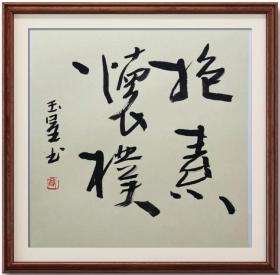 抱素
懷樸
玉星书